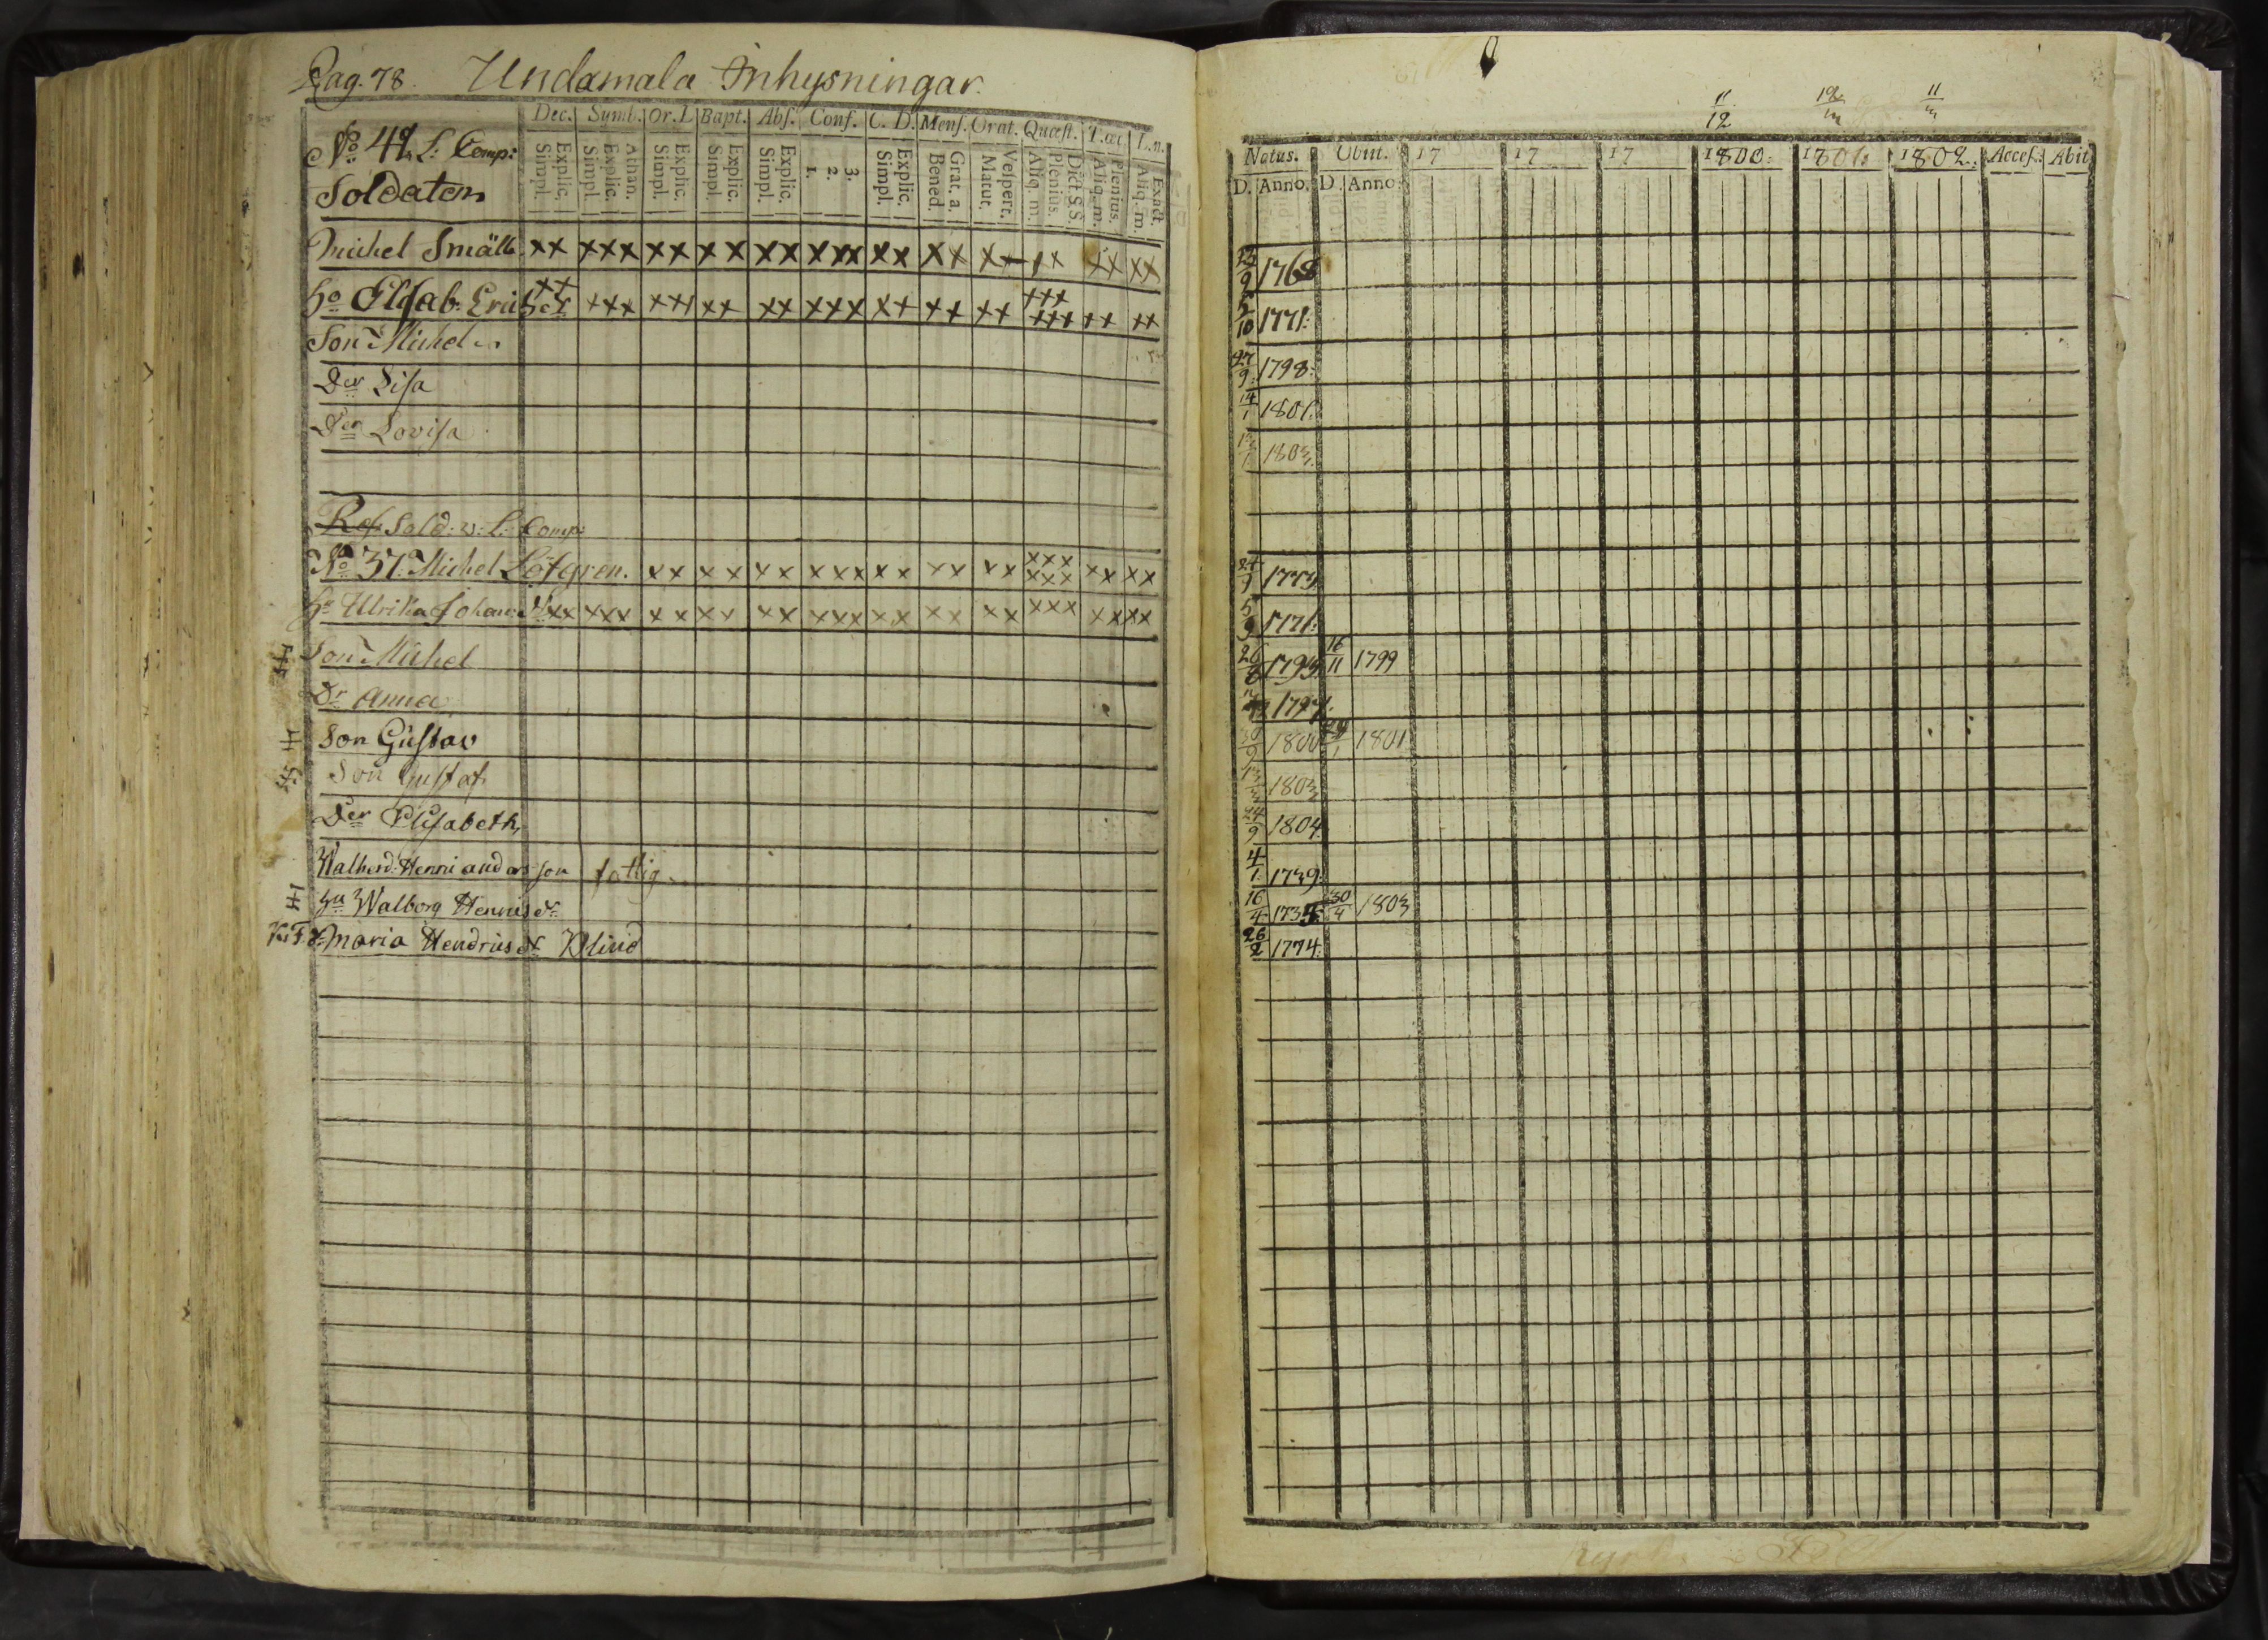 Pag. 78. Undamala Inhysningar.
Dec. Symb. Or. D Bapt. Abs. Conf. C. D. Mens. Orat. Quæst. T.æt L.n.
Explic. Simpl. Athan. Explic. Simpl. Explic. Simpl. Explic. Simpl. Explic. Simpl. 3. 2. 1. Explic. Simpl. Grat. a. Bened. Vesper. Matut. Dict. S.S. Plenius. Aliq. m. Plenius. Aliq. m. Exact. Aliq. m.
No. 42 L: Comp:
Soldaten
Michel Smält xx xxx xx xx xx xxx xx xx xx xx xx
Ho Elisab. Erics dr xx xxx xxx xx xx xxx xx xx xx xxx xxx xx xx
Son Michel
Der Lisa
Der Lovisa
Ref. Sold: v: L: Comp:
No 37. Michel Löfgren. xx xx xx xxx xx xx xx xxx xxx xx xx
Ho Ulrika Johans dr xx xxx xx xx xx xxx xx xx xx xxx xx xx
Son Michel
Dr Anna
Son Gustav
Son Gustaf
Der Elisabeth
Walberd: Henri anders son fattig
Hu Walborg Henriks dr
K:F. dr Maria Hendrics dr Blind
11/12 12/3 11/3
Natus. Obiit. 17 17 17 1800. 1801. 1802. Acces. Abit
D. Anno. D. Anno.
1768
5/10 1771.
27/9 1798.
14/1 1801.
13/1 1803.
24/9 1773
5/9 1771.
26/8 1793 16/11 1799
1797.
30/9 1800 24/1 1801
13/3 1803
24/9 1804
4/1 1739.
16/4 1735 30/4 1803
26/2 1774.